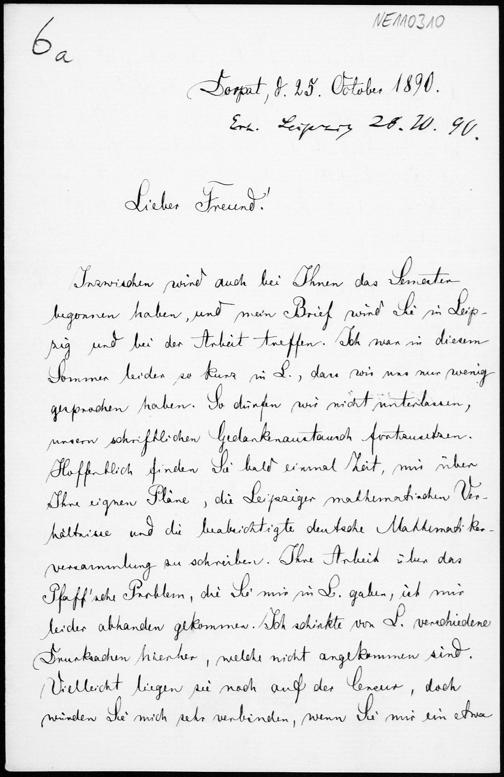 NE110310
6a
Dorpat, d. 25. October 1890.
Erh. Leipzig 28.10.90.
Lieber Freund!
Inzwischen wird auch bei Ihnen das Semester
begonnen haben, und mein Brief wird Sie in Leip-
zig und bei der Arbeit treffen. Ich war in diesem
Sommer leider so kurz in L., dass wir uns nur wenig
gesprochen haben. So dürfen wir nicht unterlassen,
unsern schriftlichen Gedankenaustausch fortzusetzen.
Hoffentlich finden Sie bald einmal Zeit, mir über
Ihre eignen Pläne, die Leipziger mathematischen Ver-
hältnisse und die beabsichtigte deutsche Mathematiker-
versammlung zu schreiben. Ihre Arbeit über das
Pfaff'sche Problem, die Sie mir in L. gaben, ist mir
leider abhanden gekommen. Ich schickte von L. verschiedene
Drucksachen hierher, welche nicht angekommen sind.
Vielleicht liegen sie noch auf der Censur, doch
würden Sie mich sehr verbinden, wenn Sie mir ein etwa